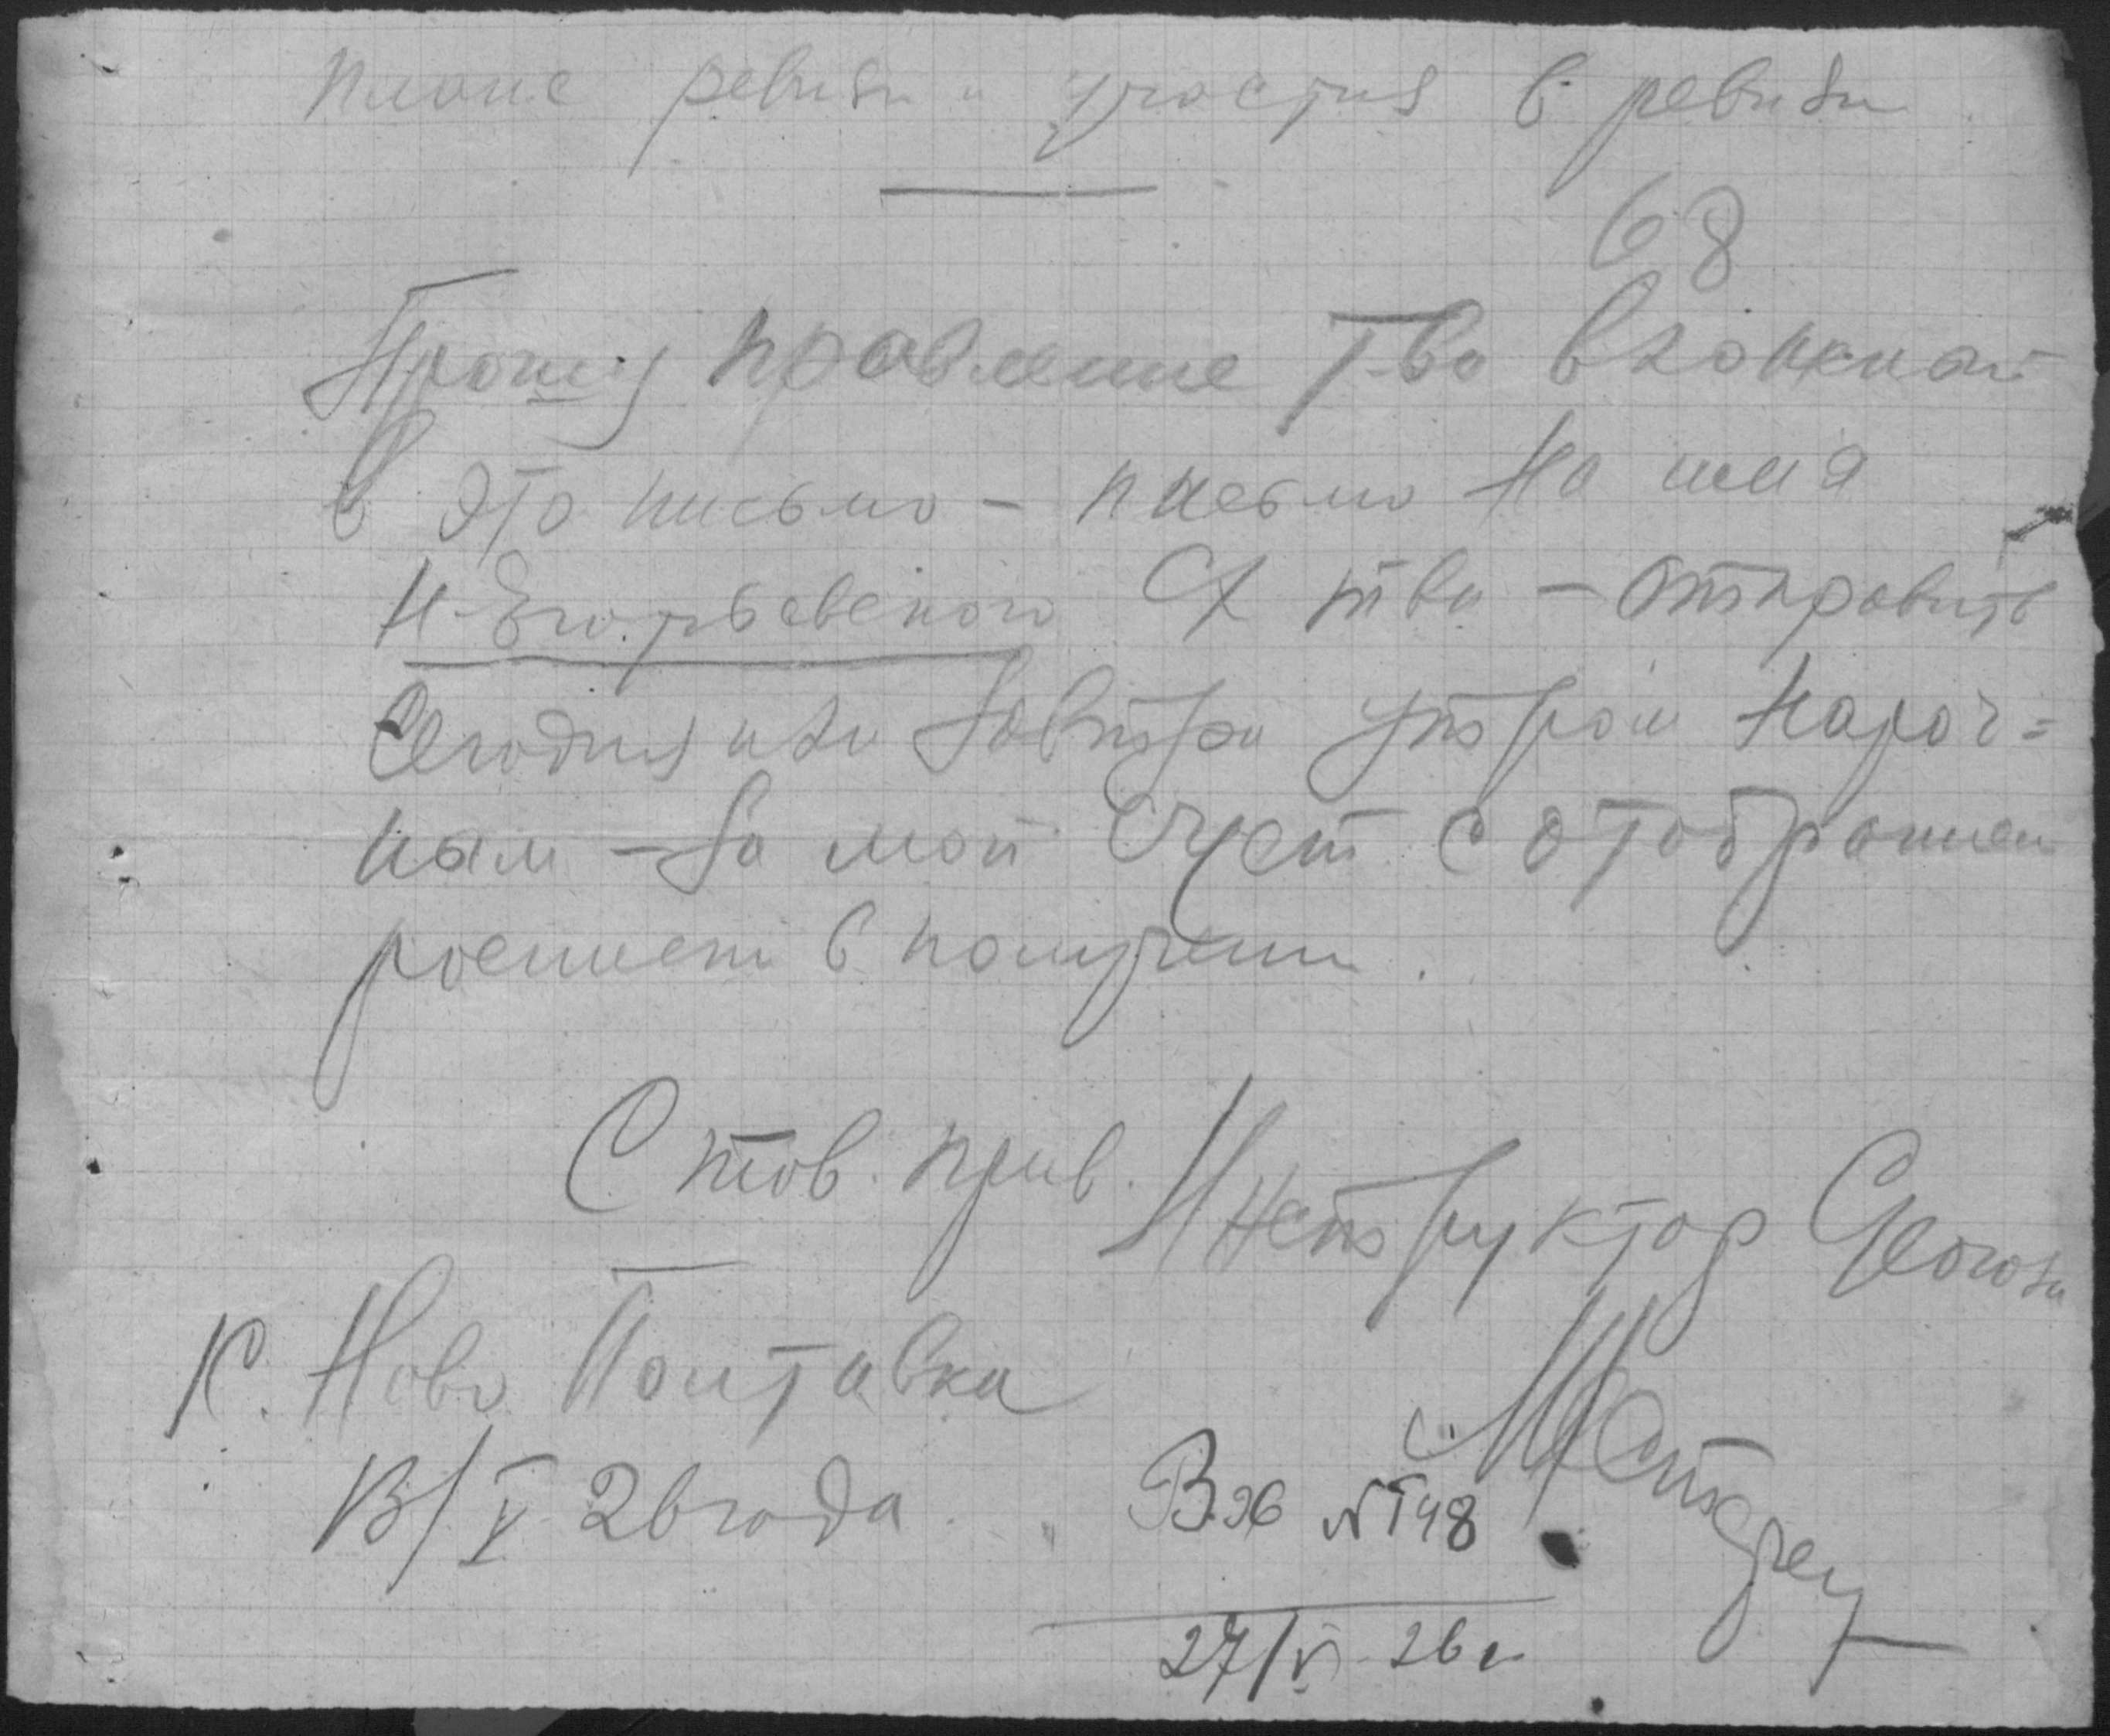 плане ревизии участия в ревизии
68
Прошу правление Т-ва вложенное
в это письмо - письмо на имя
Н-Егорьевского СХ т-ва - отправить
Сегодня или завтра утром нароч=
ным - за мой счет с отобранием
росписки в получении.
С тов. прив. Инструктор Союза
К. Ново Полтавка
В/V 26 года.
Вх №148
27/V 26 г.